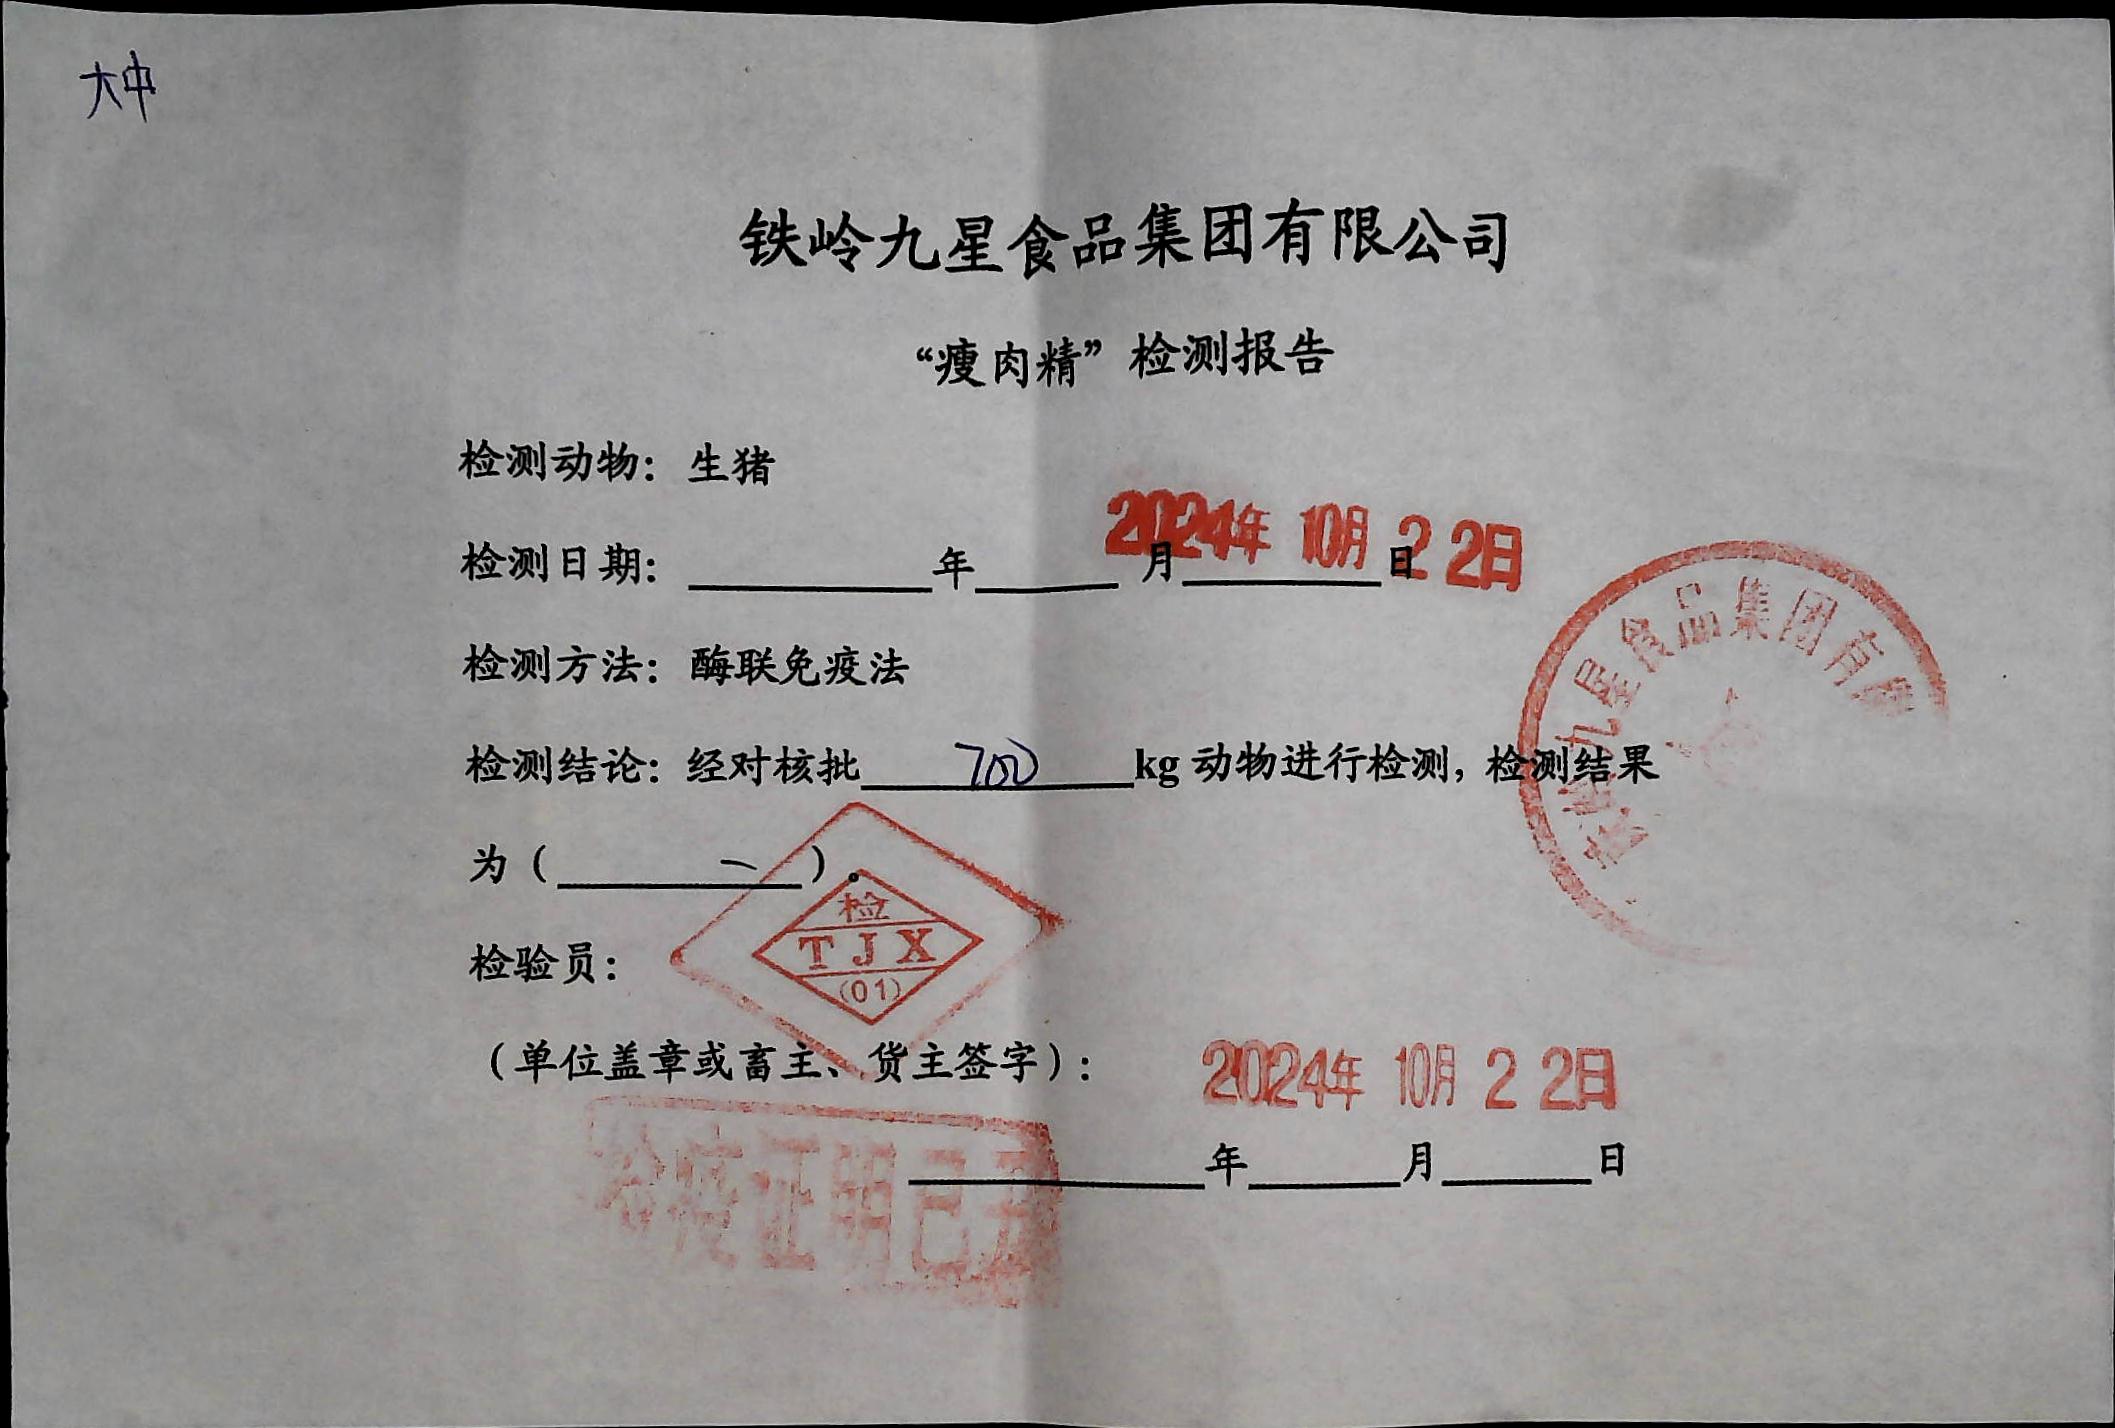 大中
铁岭九星食品集团有限公司
“瘦肉精”检测报告
检测动物：生猪
2024年 10月 22日
检测日期：年月日
检测方法：酶联免疫法
九星食品集团有限
检测结论：经对核批 700 kg 动物进行检测，检测结果
为（ 一 ）。
检
TJX
(01)
检验员：
（单位盖章或畜主、货主签字）：
2024年 10月 22日
检疫证明已开
年月日